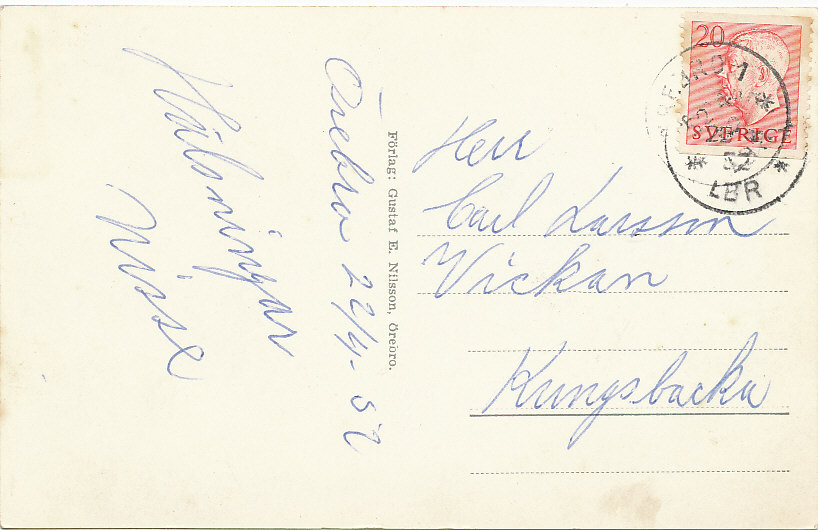 Örebro 22/4-52
Hälsningar
Nisse
Förlag: Gustaf E. Nilsson, Örebro.
Herr
Carl Larsson
Vickan
Kungsbacka
20
SVERIGE
ÖREBRO 1
LBR